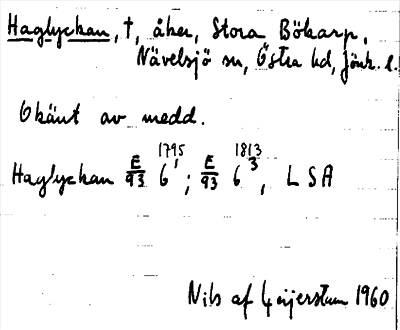 Haglyckan, †, åker, Stora Bökarp,
Nävelsjö sn, Östra hd, Jönk. l.
Okänt av medd.
1795 1813
Haglyckan E/93 6 1; E/93 6 3, LSA
Nils af Geijerstam 1960